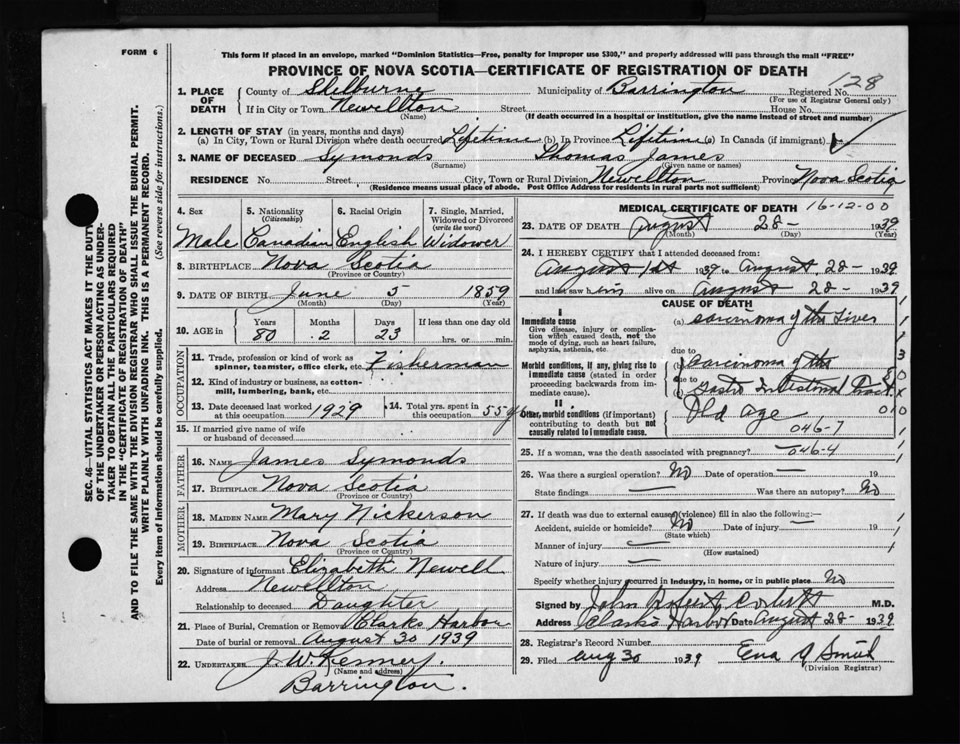 FORM 6
This form if placed in an envelope, marked "Dominion Statistics—Free, penalty for improper use $300," and properly addressed will pass through the mail "FREE"
PROVINCE OF NOVA SCOTIA—CERTIFICATE OF REGISTRATION OF DEATH
128
1. PLACE OF DEATH County of Shelburne Municipality of Barrington Registered No.
(For use of Registrar General only)
If in City or Town Newellton Street House No.
(Name) (If death occurred in a hospital or institution, give the name instead of street and number)
2. LENGTH OF STAY (in years, months and days)
(a) In City, Town or Rural Division where death occurred Lifetime (b) In Province Lifetime (c) In Canada (if immigrant) ✓
3. NAME OF DECEASED Symonds Thomas James
(Surname) (Given name or names)
RESIDENCE No. Street City, Town or Rural Division Newellton Province Nova Scotia
(Residence means usual place of abode. Post Office Address for residents in rural parts not sufficient)
4. Sex 5. Nationality (Citizenship) 6. Racial Origin 7. Single, Married, Widowed or Divorced (write the word)
Male Canadian English Widower
8. BIRTHPLACE Nova Scotia
(Province or Country)
9. DATE OF BIRTH June 5 1859
(Month) (Day) (Year)
10. AGE in Years Months Days If less than one day old
80 2 23 hrs. or min.
OCCUPATION
11. Trade, profession or kind of work as spinner, teamster, office clerk, etc. Fisherman
12. Kind of industry or business, as cotton-mill, lumbering, bank, etc.
13. Date deceased last worked at this occupation 1929 14. Total yrs. spent in this occupation 55 y
15. If married give name of wife or husband of deceased
FATHER
16. NAME James Symonds
17. BIRTHPLACE Nova Scotia
(Province or Country)
MOTHER
18. MAIDEN NAME Mary Nickerson
19. BIRTHPLACE Nova Scotia
(Province or Country)
20. Signature of informant Elizabeth Newell
Address Newellton
Relationship to deceased Daughter
21. Place of Burial, Cremation or Removal Clarks Harbor
Date of burial or removal August 30 1939
22. UNDERTAKER J. W. Kenney.
(Name and address)
Barrington.
MEDICAL CERTIFICATE OF DEATH 16-12-00
23. DATE OF DEATH August 28- 1939
(Month) (Day) (Year)
24. I HEREBY CERTIFY that I attended deceased from:
August 1st 1939 to August 28- 1939
and last saw him alive on August 28- 1939
CAUSE OF DEATH
I
Immediate cause
Give disease, injury or complication which caused death, not the mode of dying, such as heart failure, asphyxia, asthenia, etc.
(a) Carcinoma of the Liver
due to
Morbid conditions, if any, giving rise to immediate cause (stated in order proceeding backwards from immediate cause).
(b) Carcinoma of the
due to
Gastro Intestinal Tract
II
Other morbid conditions (if important) contributing to death but not causally related to immediate cause.
Old Age 010
046-7
25. If a woman, was the death associated with pregnancy? 046-4
26. Was there a surgical operation? No Date of operation — 19
State findings — Was there an autopsy? No
27. If death was due to external causes (violence) fill in also the following:—
Accident, suicide or homicide? No Date of injury — 19
(State which)
Manner of injury —
(How sustained)
Nature of injury —
Specify whether injury occurred in industry, in home, or in public place No
Signed by John M.D.
Address Clarks Harbor Date August 28- 1939
28. Registrar's Record Number
29. Filed Aug 30 1939 Ena Smith
(Division Registrar)
SEC. 46—VITAL STATISTICS ACT MAKES IT THE DUTY
OF THE UNDERTAKER OR PERSON ACTING AS UNDER-
TAKER TO OBTAIN ALL THE PARTICULARS REQUIRED
IN THE "CERTIFICATE OF REGISTRATION OF DEATH"
AND TO FILE THE SAME WITH THE DIVISION REGISTRAR WHO SHALL ISSUE THE BURIAL PERMIT.
WRITE PLAINLY WITH UNFADING INK. THIS IS A PERMANENT RECORD.
Every item of information should be carefully supplied. (See reverse side for instructions.)